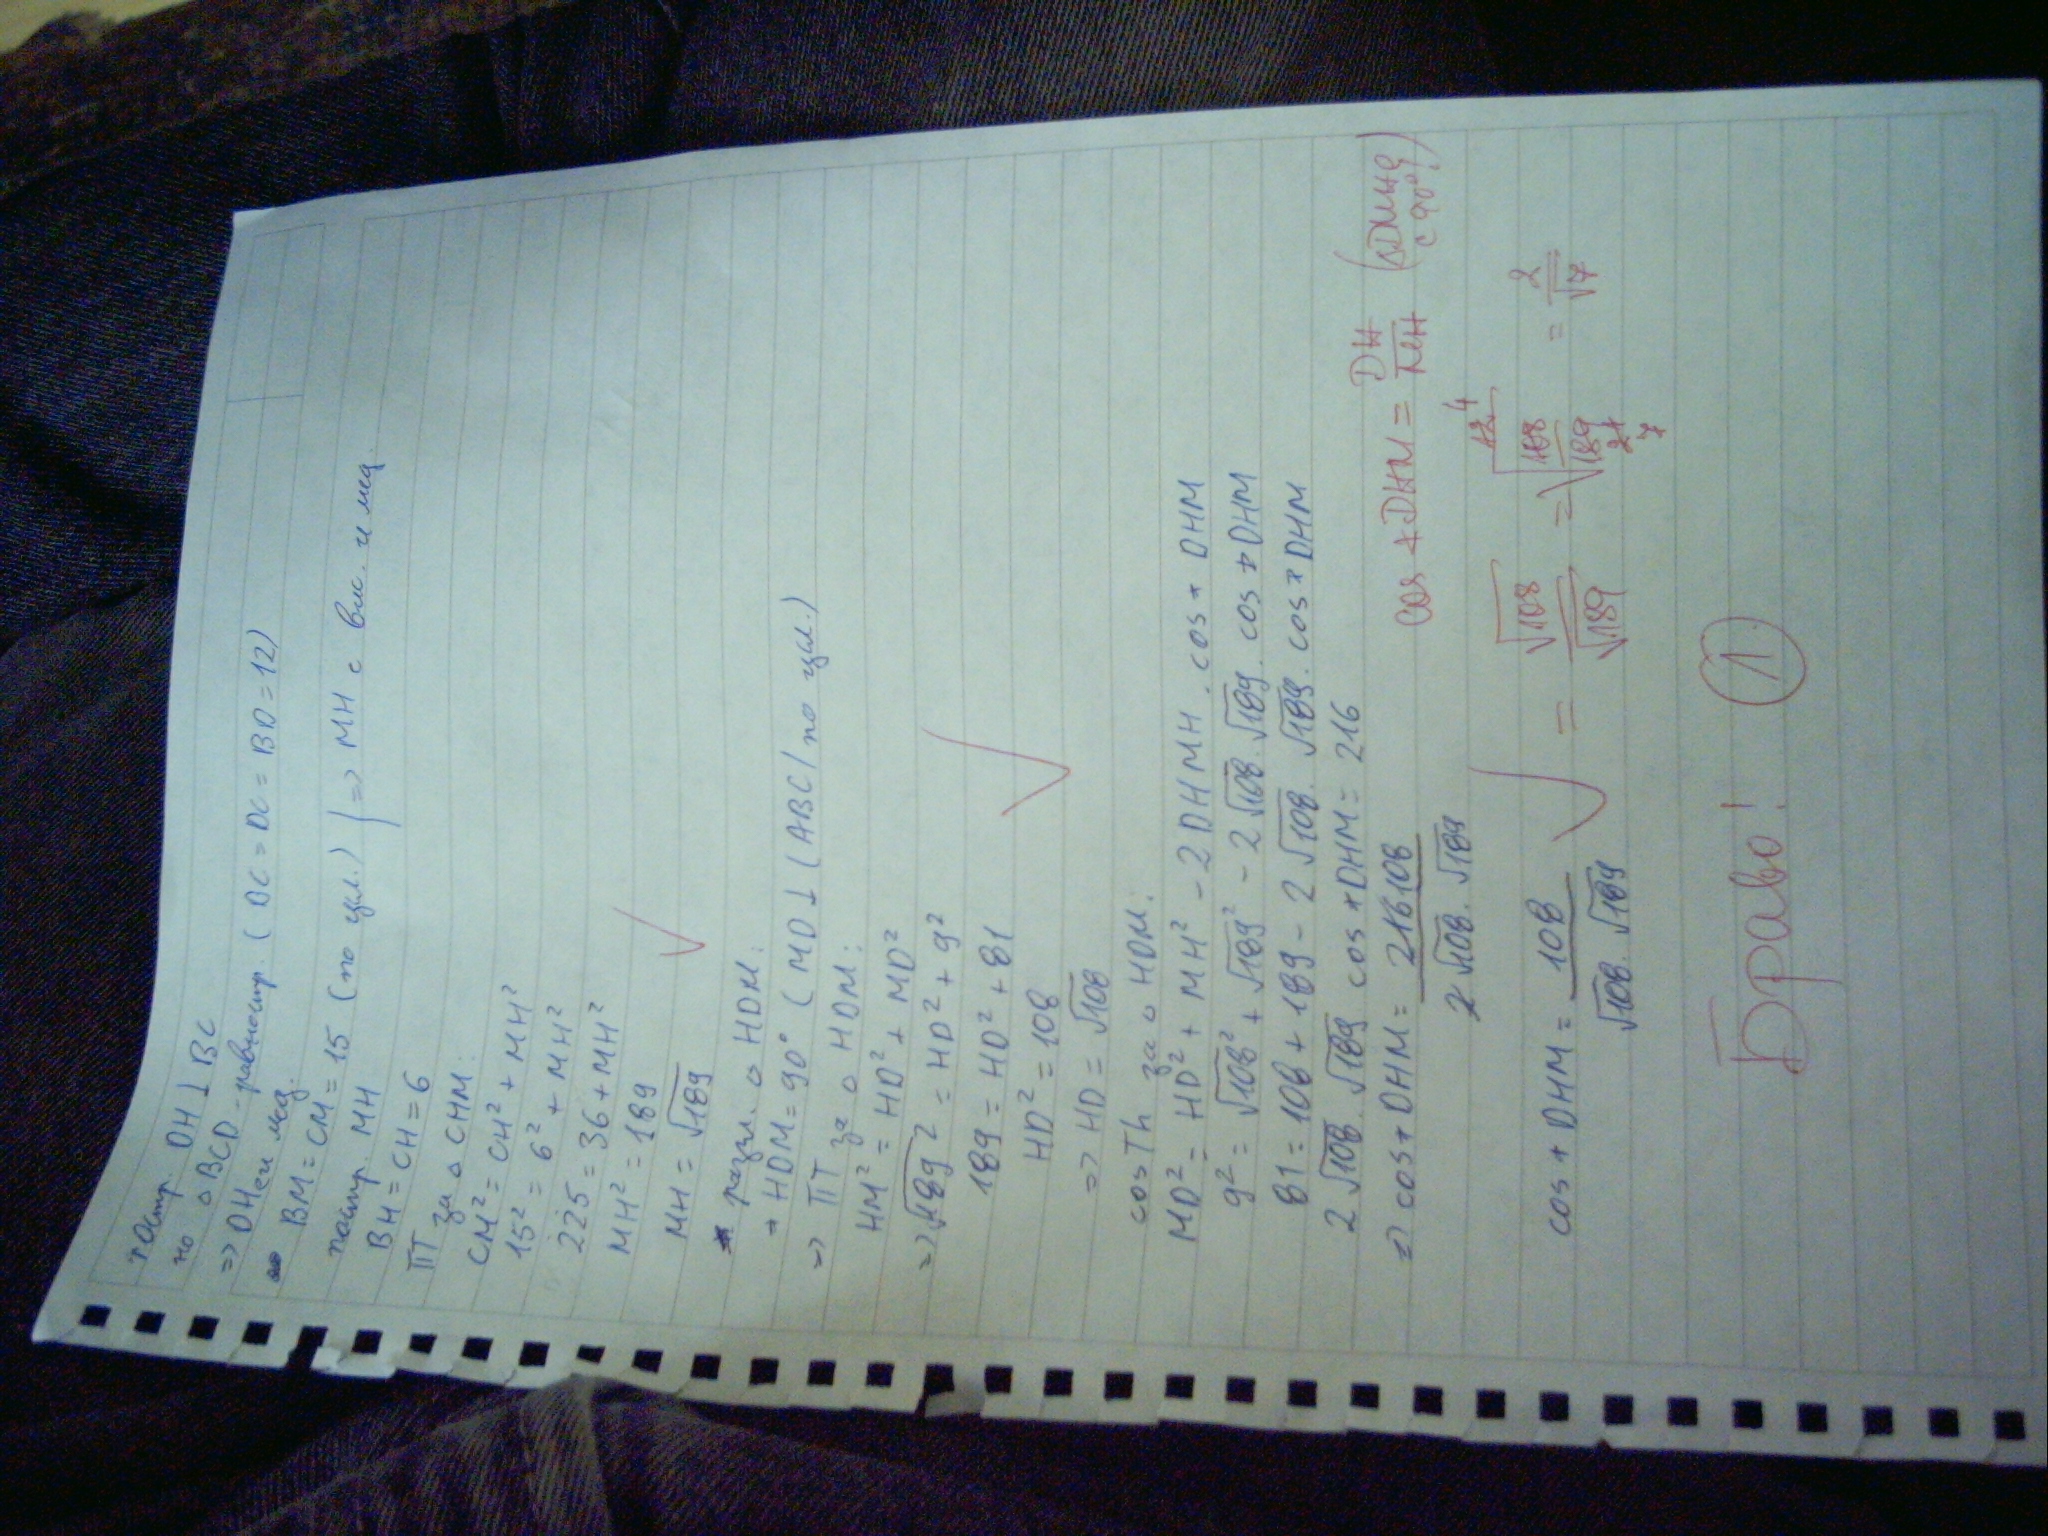 постр. DH ⊥ BC
но △BCD - равностр. (BC = DC = BD = 12)
=> DH е и мед.
BM = CM = 15 (по усл.) } => MH е вис. и мед.
постр. MH
BH = CH = 6
ПТ за △CHM:
CM² = CH² + MH²
15² = 6² + MH²
225 = 36 + MH²
MH² = 189
MH = √189
разгл. △HDM:
∢HDM = 90° (MD ⊥ (ABC) по усл.)
=> ПТ за △HDM:
HM² = HD² + MD²
=> √189² = HD² + 9²
189 = HD² + 81
HD² = 108
=> HD = √108
cos Th за △HDM:
MD² = HD² + MH² - 2DH MH . cos∢DHM
9² = √108² + √189² - 2√108 . √189 . cos∢DHM
81 = 108 + 189 - 2√108 . √189 . cos∢DHM
2√108 . √189 cos∢DHM = 216
=> cos∢DHM = 216 108 / 2√108 . √189
cos∢DHM = DH/MH (△DMH е с 90°!)
cos∢DHM = 108 / √108 . √189 = √108 / √189 = √(108 12 4 / 189 21 7) = 2/√7
Браво! 1